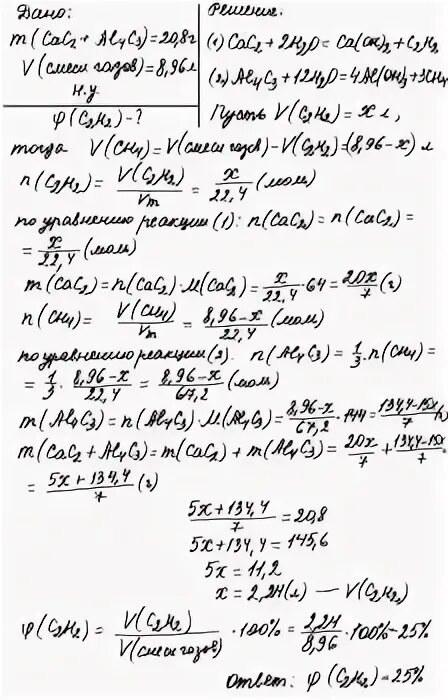 Дано:
m(CaC₂ + Al₄C₃)=20,8г
V(смеси газов)=8,96л
н.у.
φ(C₂H₂)-?
Решение:
(1) CaC₂+2H₂O=Ca(OH)₂+C₂H₂
(2) Al₄C₃+12H₂O=4Al(OH)₃+3CH₄
Пусть V(C₂H₂)=x л,
тогда V(CH₄)=V(смеси газов)-V(C₂H₂)=(8,96-x) л
n(C₂H₂)= V(C₂H₂)/Vm = x/22,4 (моль)
по уравнению реакции (1): n(CaC₂)=n(CaC₂)=
= x/22,4 (моль)
m(CaC₂)=n(CaC₂)·M(CaC₂)= x/22,4 ·64= 20x/7 (г)
n(CH₄)= V(CH₄)/Vm = 8,96-x/22,4 (моль)
по уравнению реакции (2): n(Al₄C₃)= 1/3 ·n(CH₄)=
= 1/3 · 8,96-x/22,4 = 8,96-x/67,2 (моль)
m(Al₄C₃)=n(Al₄C₃)·M(Al₄C₃)= 8,96-x/67,2 ·144= 134,4-15x/7 (г)
m(CaC₂+Al₄C₃)=m(CaC₂)+m(Al₄C₃)= 20x/7 + 134,4-15x/7 =
= 5x+134,4/7 (г)
5x+134,4/7 =20,8
5x+134,4=145,6
5x=11,2
x=2,24(л) — V(C₂H₂)
φ(C₂H₂)= V(C₂H₂)/V(смеси газов) ·100%= 2,24/8,96 ·100%=25%
Ответ: φ(C₂H₂)=25%